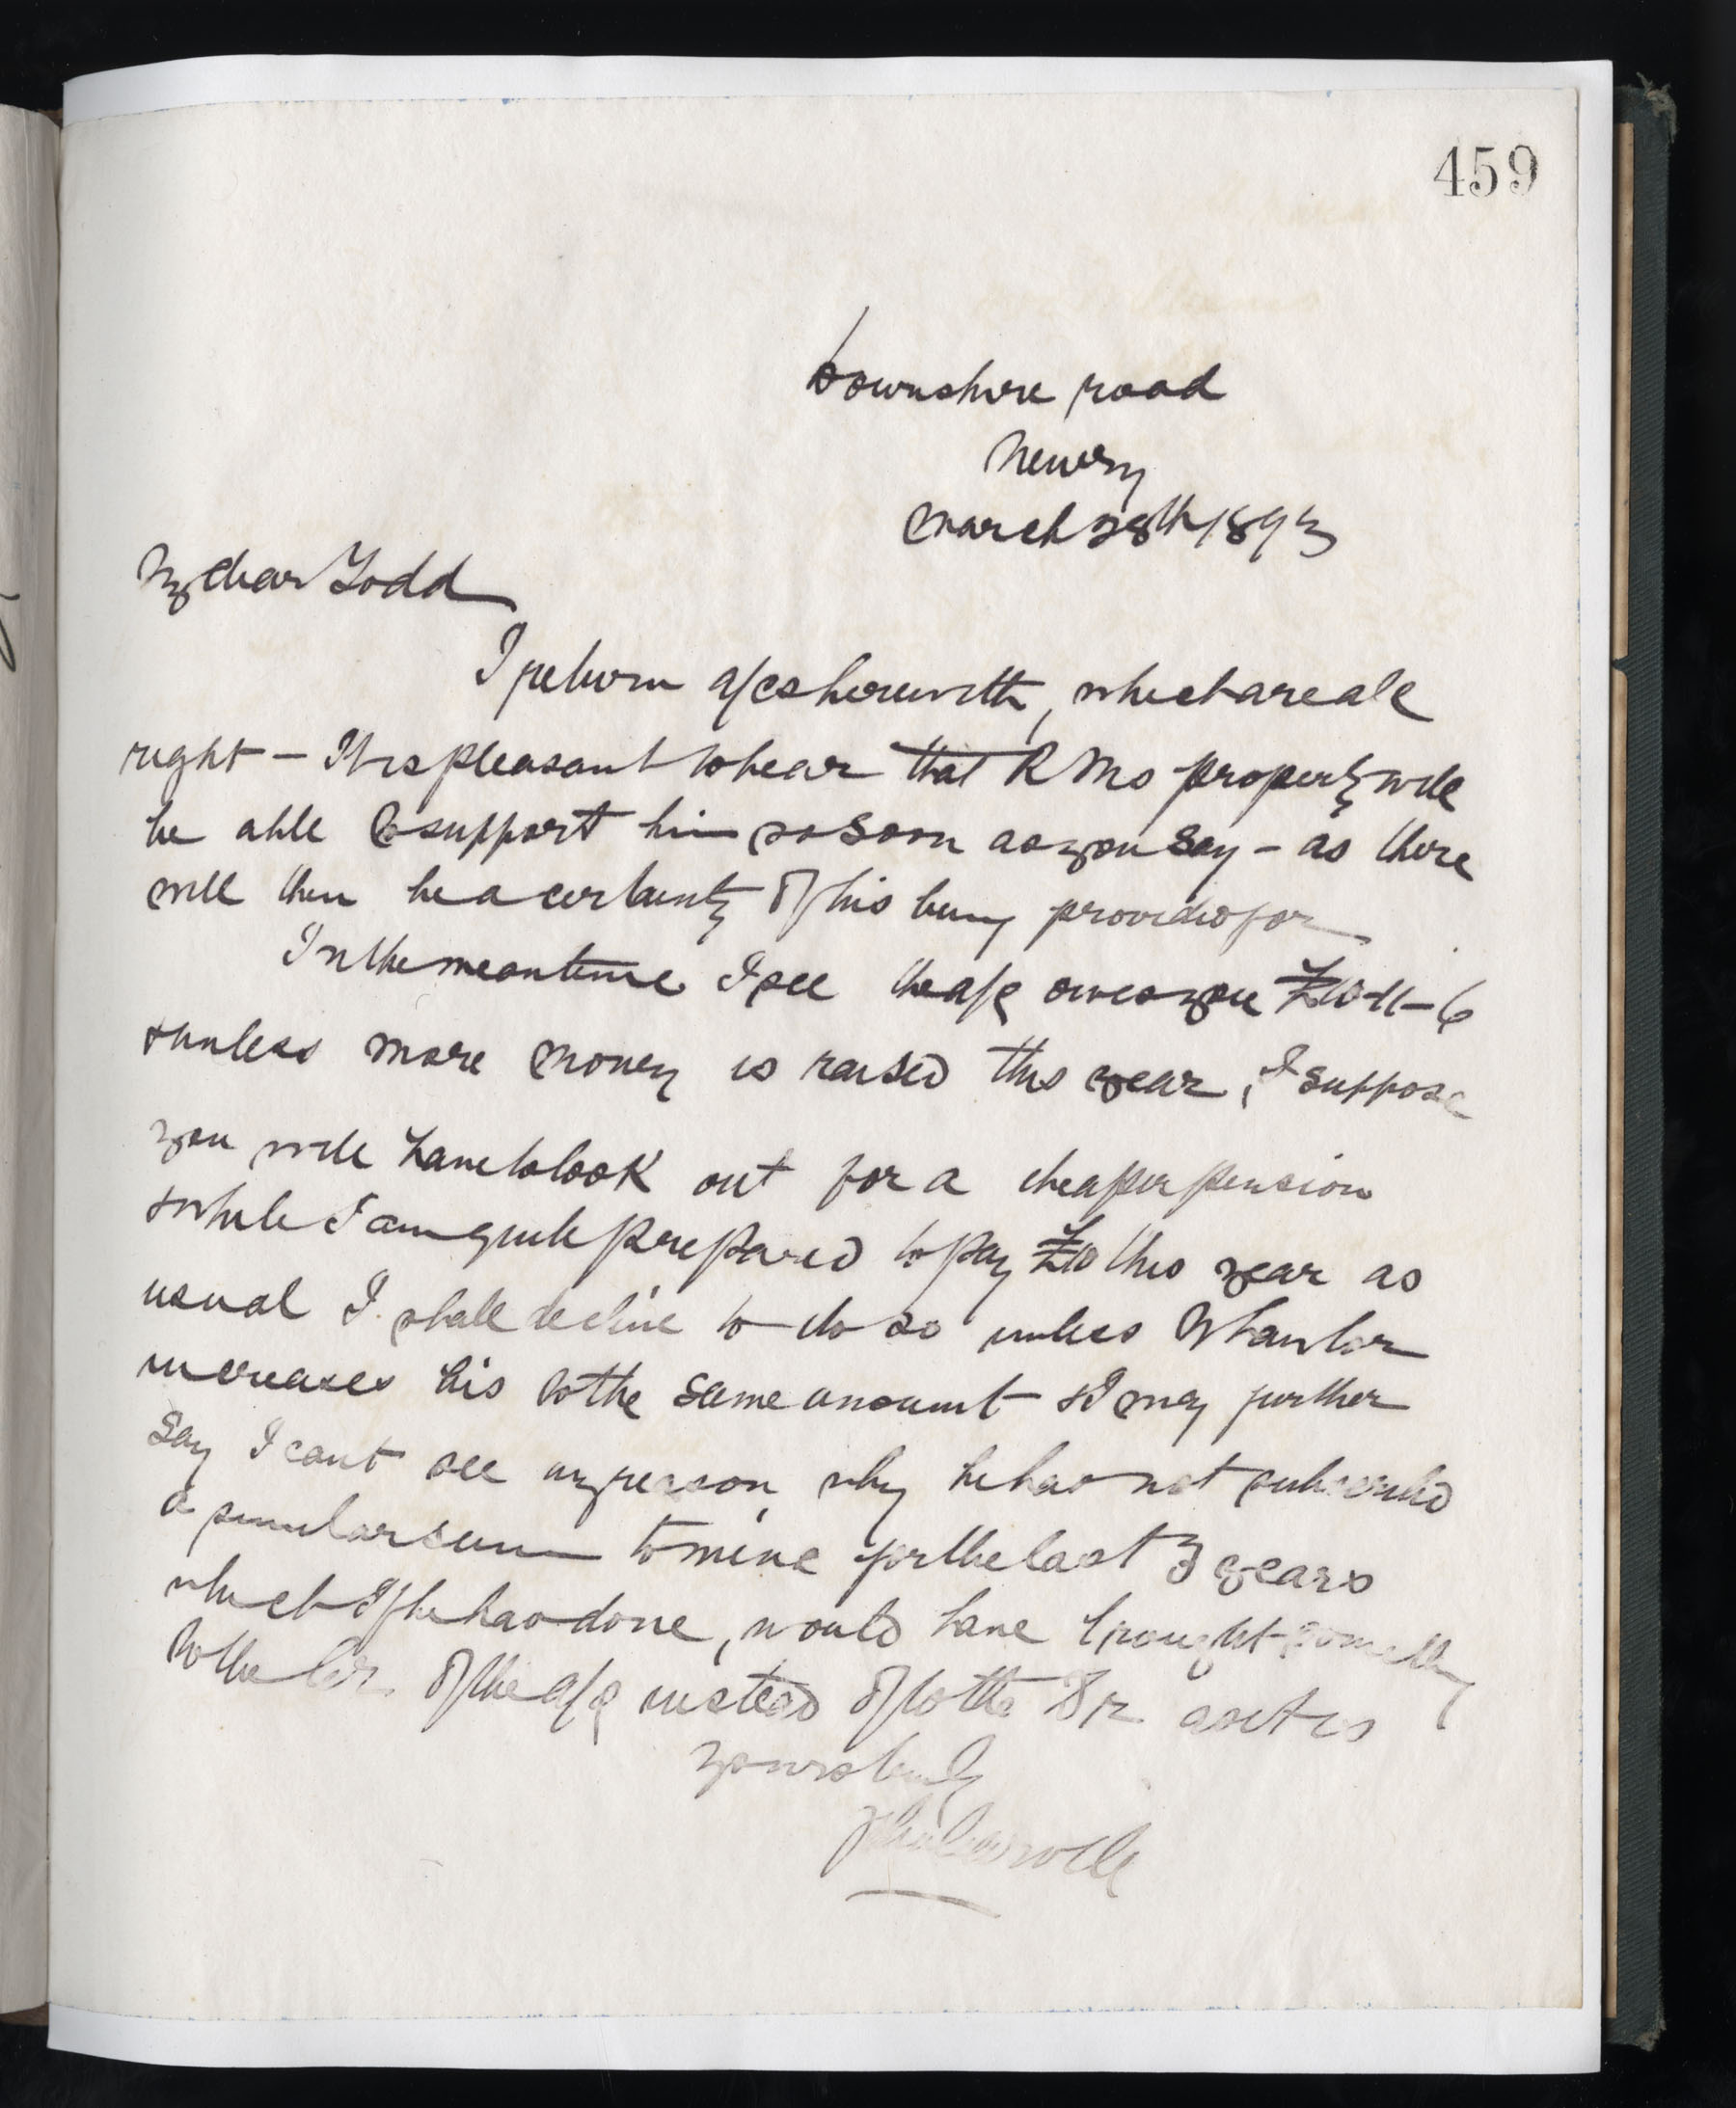 459
Downshire road
Newry
March 28th 1893
My dear Todd
I return a/cs herewith, which are all
right - It is pleasant to hear that R Ms property will
be able to support him so soon as you say - as there
will then be a certainty of his being provided for
In the meantime I see the a/c owes you £10-11-6
& unless more money is raised this year, I suppose
you will have to look out for a cheaper pension
& while I am quite prepared to pay £10 this year as
usual I shall decline to do so unless
increases his to the same amount & I may further
say I cant see any reason why he has not subscribed
a similar sum to mine for the last 3 years
which if he has done, would have brought something
to the Cr. of the a/c instead of to the Dr as it is
Yours truly